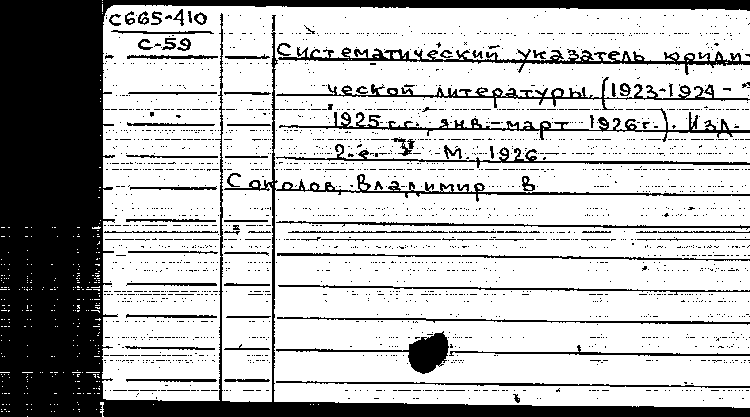 С665-410
С-59
Систематический указатель юриди-
ческой литературы. (1923-1924 -
1925 г.г., янв.-март 1926 г.). Изд.
2-е. М., 1926.
Соколов, Владимир В